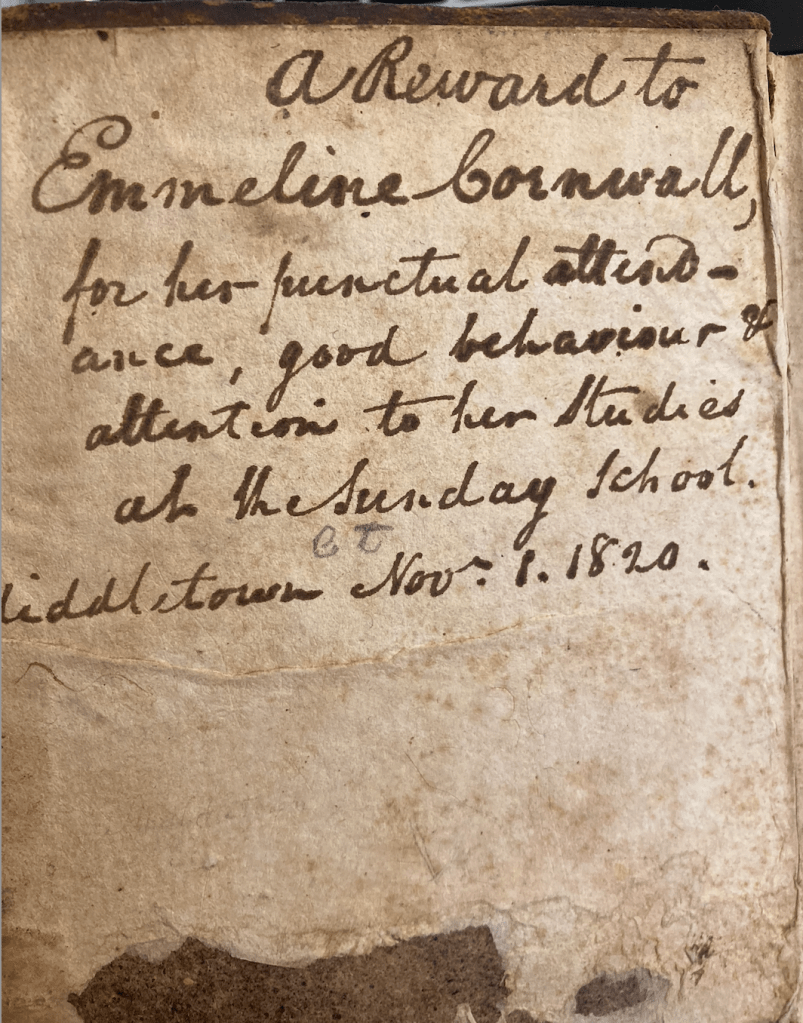 A Reward to
Emmeline Cornwall,
for her punctual attend-
ance, good behaviour &
attention to her Studies
at the Sunday School.
CT
iddletown Novr. 1. 1820.